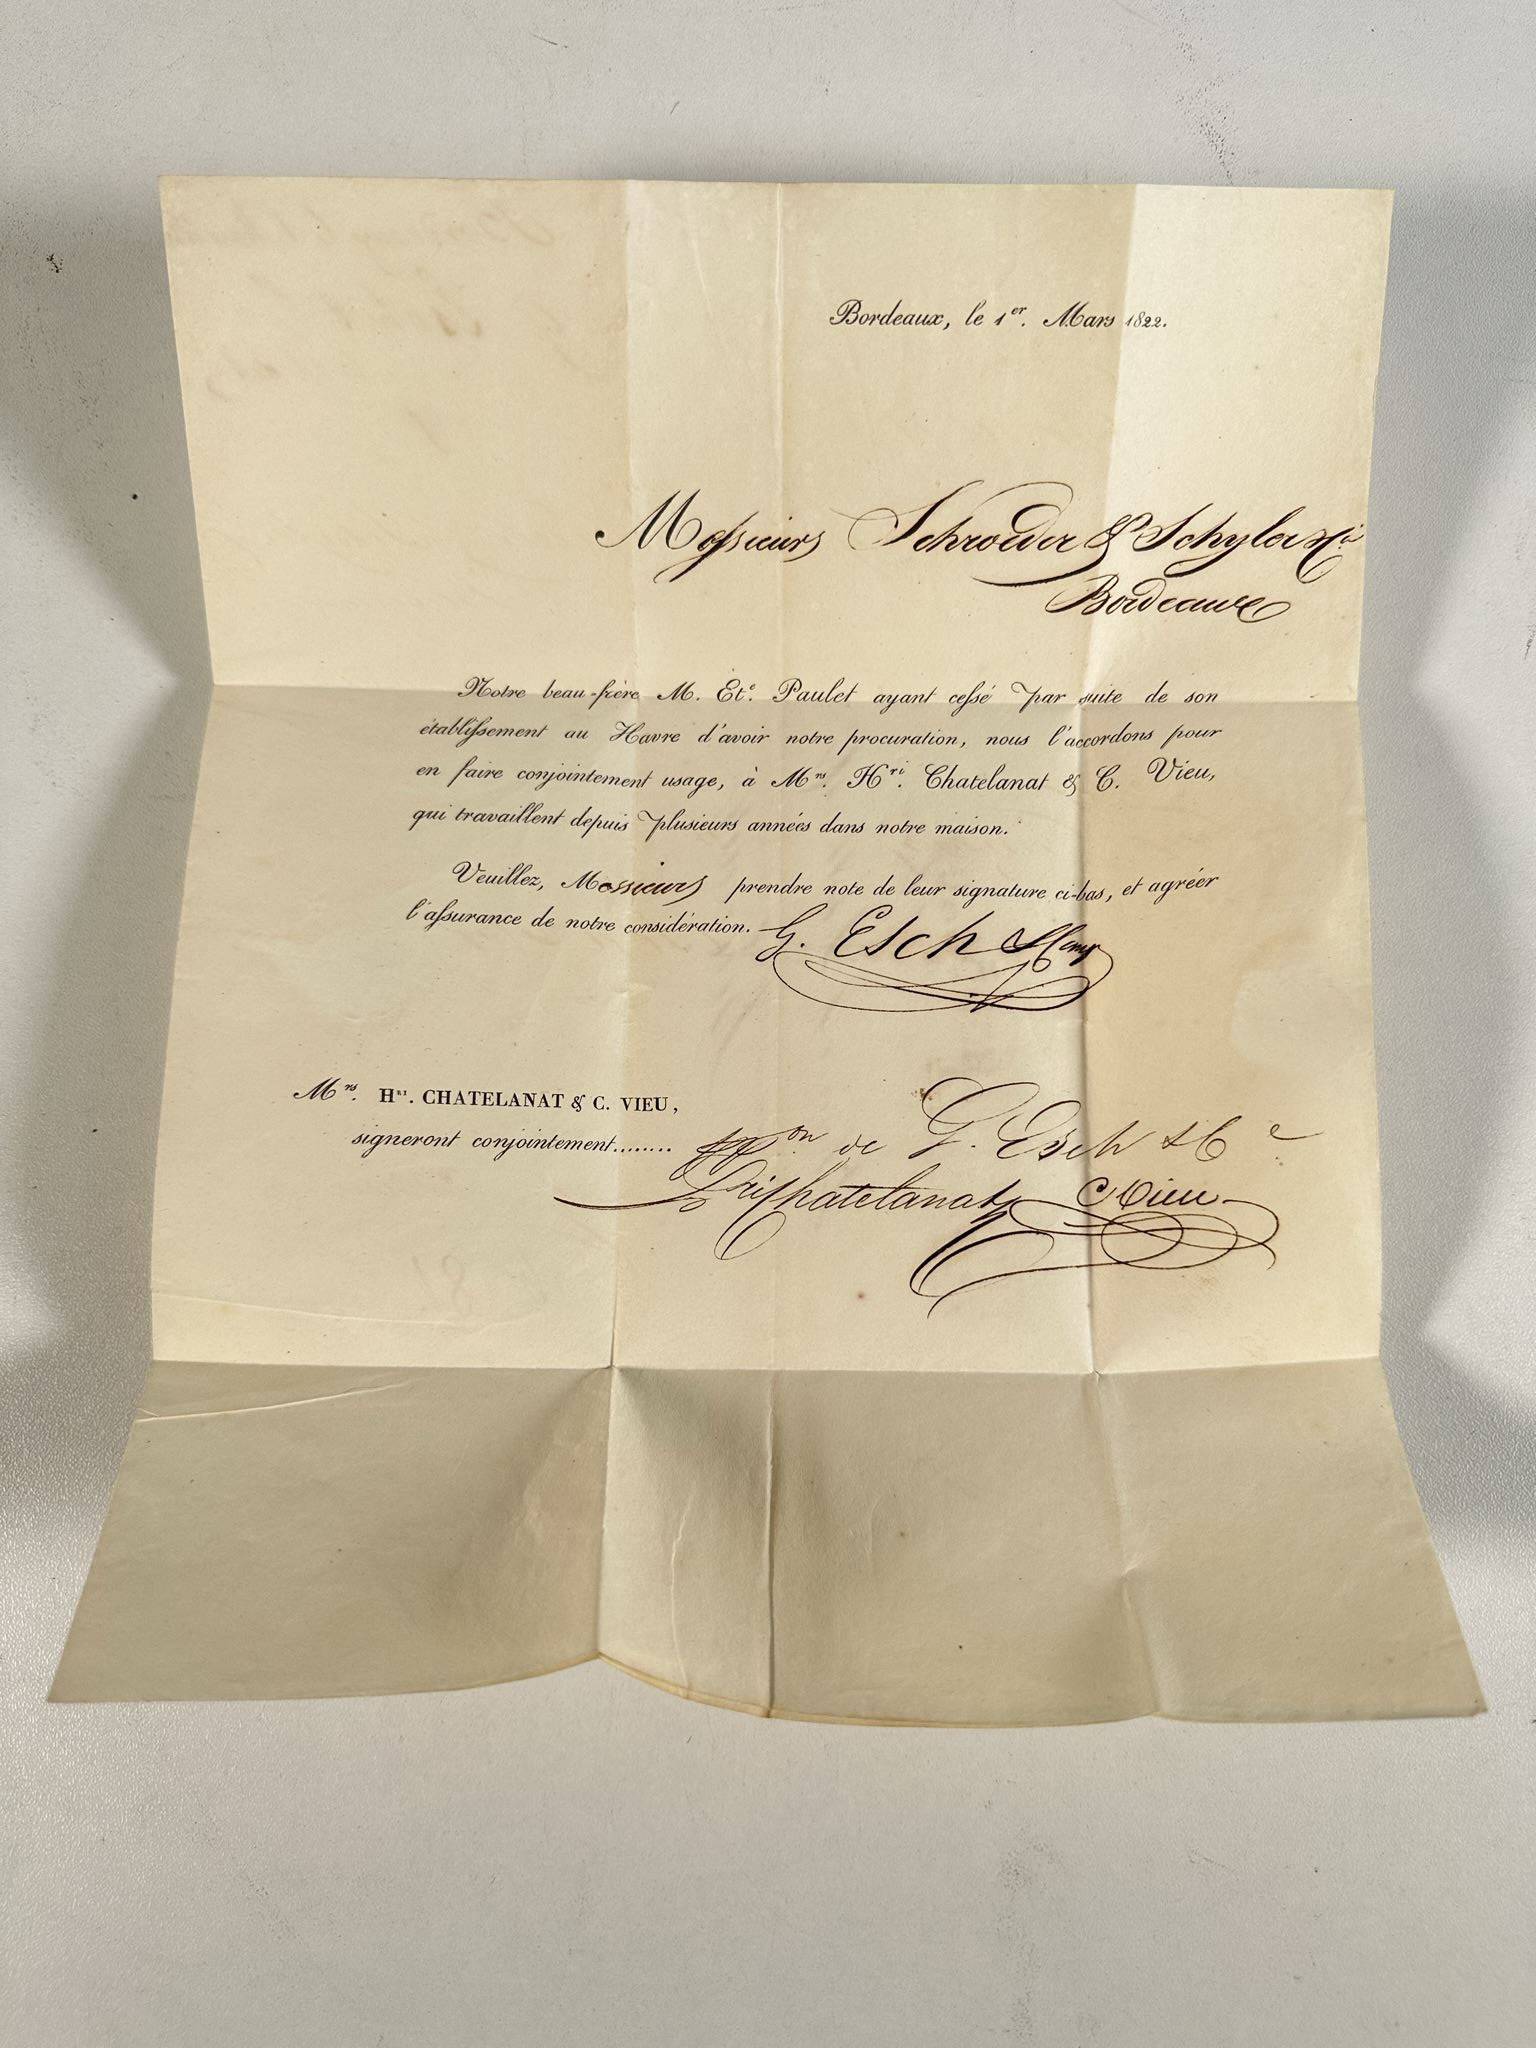 Bordeaux, le 1er. Mars 1822.
Messieurs Schroeder & Schyler & Cie
Bordeaux
Notre beau-frère M. Éte. Paulet ayant cessé par suite de son
établissement au Havre d'avoir notre procuration, nous l'accordons pour
en faire conjointement usage, à Mrs. Hri. Chatelanat & C. Vieu,
qui travaillent depuis plusieurs années dans notre maison.
Veuillez, Messieurs prendre note de leur signature ci-bas, et agréer
l'assurance de notre considération.
G. Esch & Comp
Mrs. Hri. CHATELANAT & C. VIEU,
signeront conjointement........
ppon de G. Esch & Ce
Hri Chatelanat C Vieu